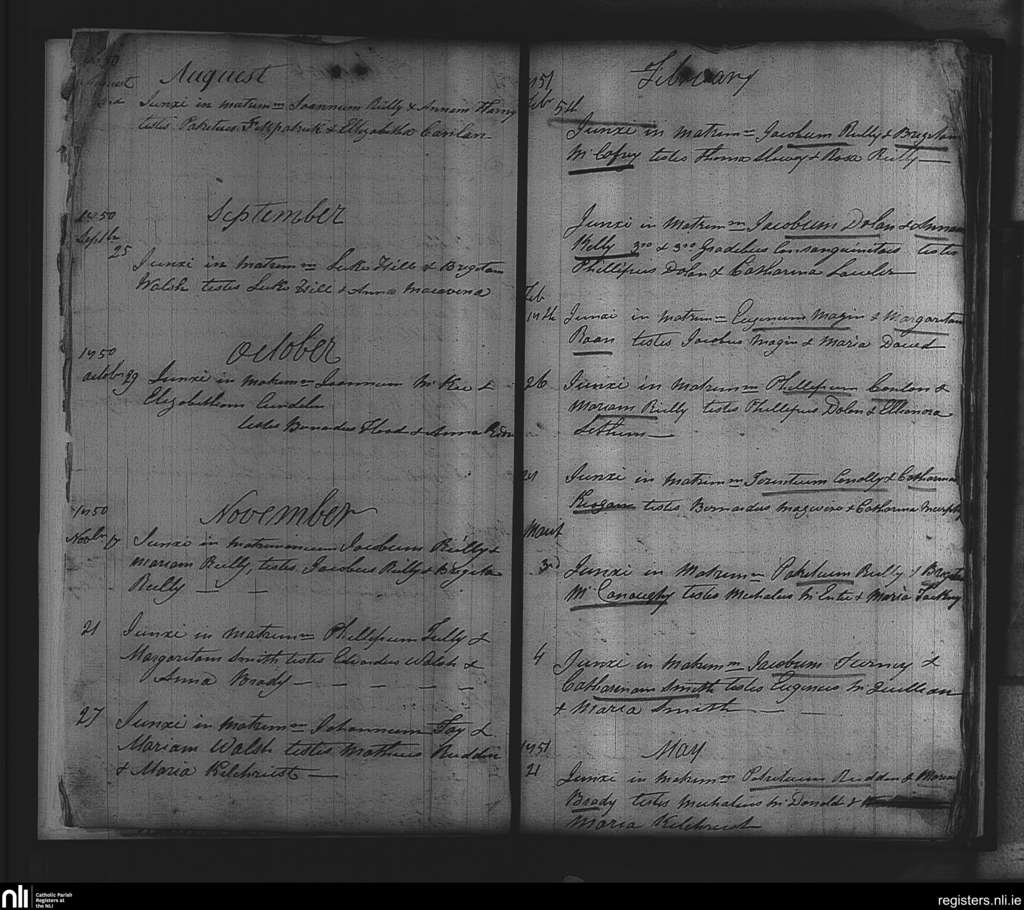 August
Junxi in matrim-m Joannum Reilly & Annam
testes Patritius Fitzpatrick & Elizabetha Conlan
1850 September
Septbr
25 Junxi in matrim-m Luke Hill & Brigitam
Walsh testes Luke Hill & Anna
1850 October
October 29 Junxi in matrim-m Joannum McKee &
Elizabetham
testes Bernardus Flood & Anna
1850 November
Novbr 17 Junxi in matrimonium Jacobum Reilly &
Mariam Reilly, testes Jacobus Reilly & Brigita
Reilly — —
21 Junxi in matrim-m Phillipum Tully &
Margaritam Smith testes Edvardus Walsh &
Anna Brady — — — — —
27 Junxi in matrim-m Johannum Fay &
Mariam Walsh testes Matheus Rudden
& Maria Kilchriest —
1851 February
Feb 5th
Junxi in matrim-m Jacobum Reilly & Brigitam
McCofrey testes Thoma & Rosa Reilly —
Junxi in matrim-m Jacobum Dolan & Annam
Reilly 3tio & 3tio Gradibus Consanguinitatis testes
Phillipus Dolan & Catharina Lawler
Feb
Junxi in matrim-m Eugenium Magin & Margaritam
testes Jacobus Magin & Maria Dowd
26 Junxi in matrim-m Phillipum Conlon &
Mariam Reilly testes Phillipus Dolan & Elleanora
—
Junxi in matrim-m Terintium Conolly & Catharinam
Keogan testes Bernardus & Catharina Murphy
Mart
3rd Junxi in matrim-m Patritium Reilly & Brigitam
McConaughy testes Michalius McEntee & Maria
4 Junxi in matrim-m Jacobum Turney &
Catharinam Smith testes Eugenius McQuillean
& Maria Smith — —
1851 May
21 Junxi in matrim-m Patritium Rudden & Mariam
Brady testes Michalius McDonald &
Maria Kilchriest
nli Catholic Parish
Registers at
the NLI
registers.nli.ie